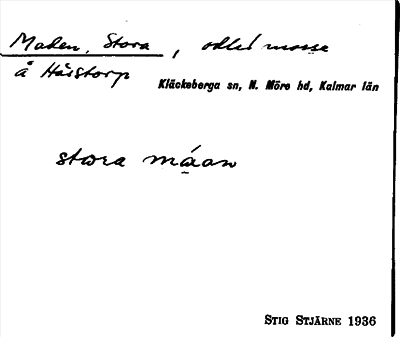 Maden, Stora, odlad mosse
å Härstorp
Kläckeberga sn, N. Möre hd, Kalmar län
stora máan
STIG STJÄRNE 1936